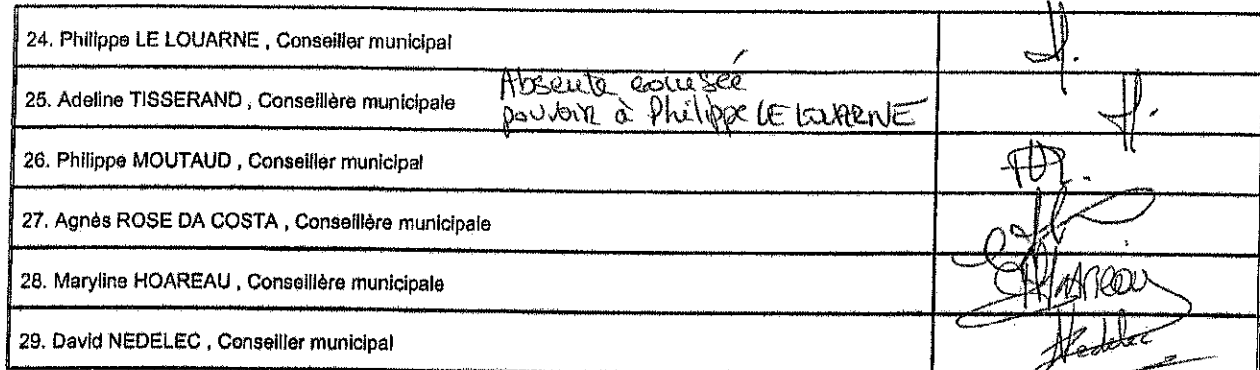 24. Philippe LE LOUARNE , Conseiller municipal
Absente excusée
25. Adeline TISSERAND , Conseillère municipale
pouvoir à Philippe LE LOUARNE
26. Philippe MOUTAUD , Conseiller municipal
27. Agnès ROSE DA COSTA , Conseillère municipale
28. Maryline HOAREAU , Conseillère municipale
29. David NEDELEC , Conseiller municipal
Nedelec